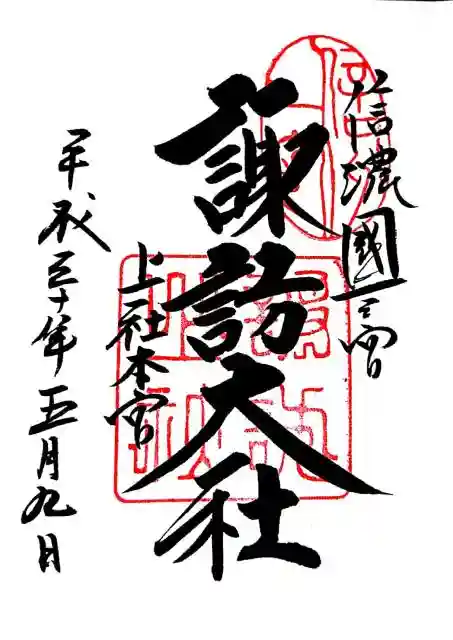 信濃國一之宮
諏訪大社
上社本宮
平成三十年五月九日